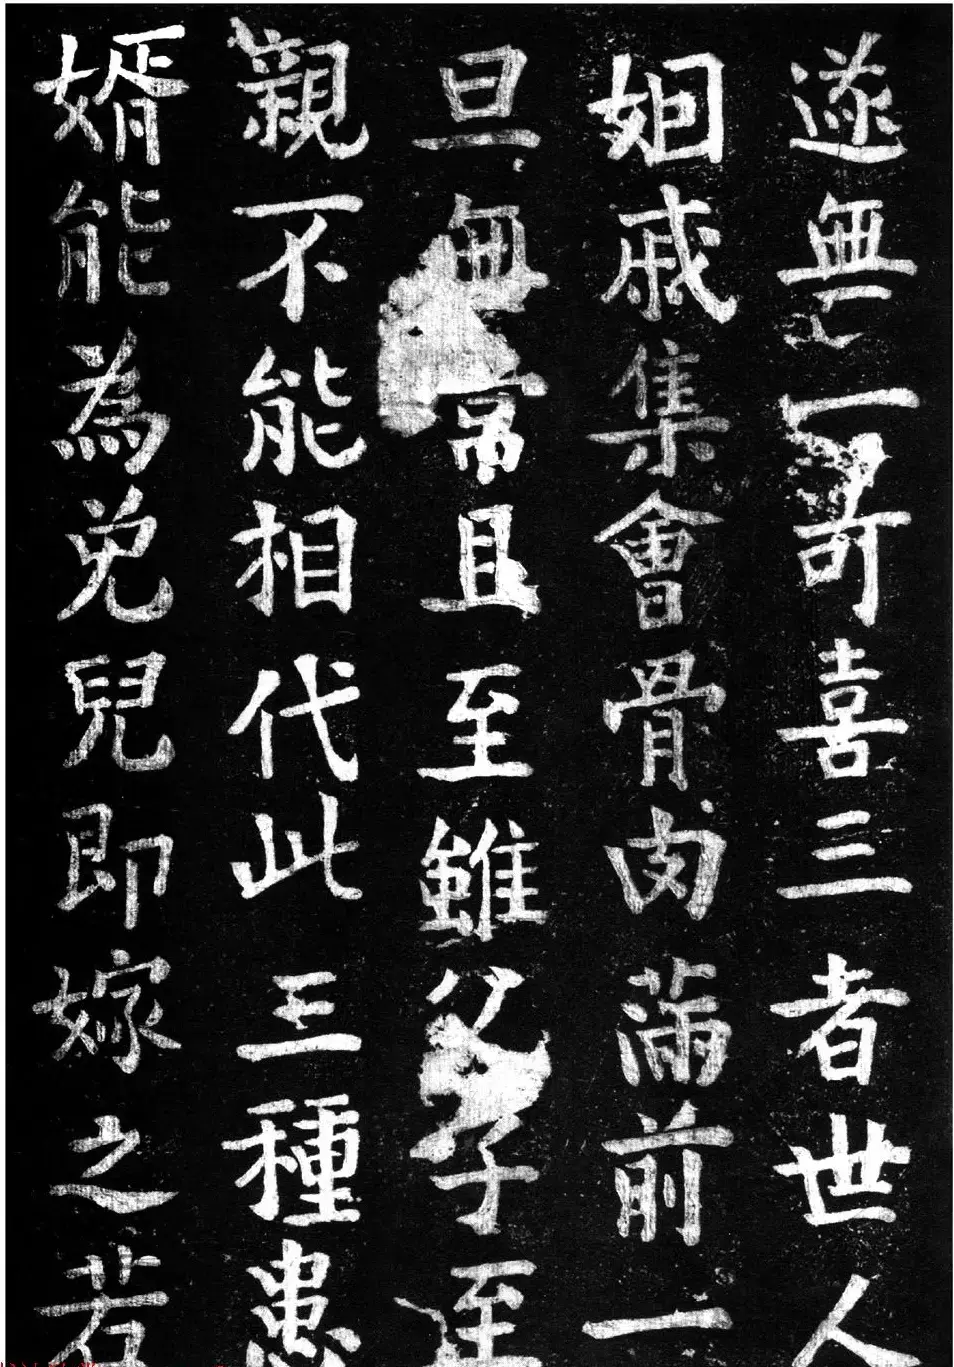 遂無一可喜三者世人
姻戚集會骨肉滿前一
旦無常且至雖父子至
親不能相代此三種患
婿能為免兒即嫁之若